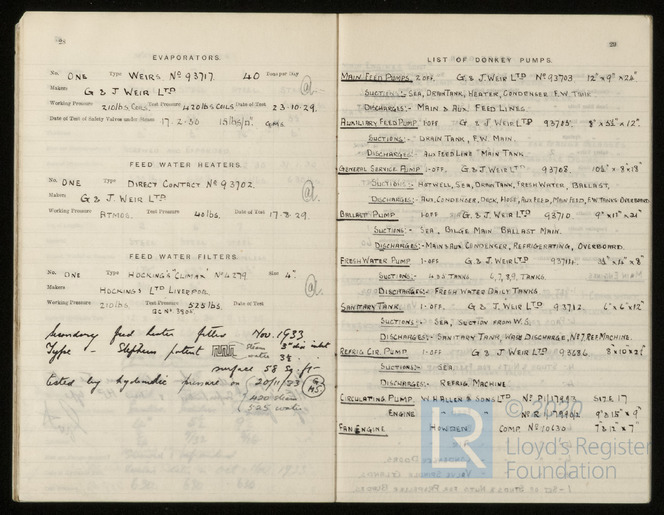 EVAPORATORS.
No. ONE Type WEIRS No 93717. 40 Tons per day
Makers G & J WEIR LTD
Working Pressure 210 lbs. COILS Test Pressure 420 lbs COILS Date of Test 23-10-29.
Date of Test of Safety Valves under Steam 17-2-30 15 lbs/□".
FEED WATER HEATERS.
No. ONE Type DIRECT CONTACT No 93702.
Makers G & J. WEIR LTD
Working Pressure ATMOS. Test Pressure 40 lbs. Date of Test 17-8-29.
FEED WATER FILTERS
No. ONE Type HOCKING'S "CLIMAX" No 4279. Size 4".
Makers HOCKINGS LTD LIVERPOOL
Working Pressure 210 lbs. Test Pressure 525 lbs. Date of Test
Secondary feed heater fitted Nov. 1933
Type - patent Steam 3" dia inlet
water 3½
surface 58 sq. ft -
tested by hydraulic pressure on 20/11/33
420 steam
525 water
29
LIST OF DONKEY PUMPS.
MAIN FEED PUMPS. 2 OFF. G & J. WEIR LTD No 93703 12" x 9" x 24"
SUCTIONS:- SEA, DRAIN TANK, HEATER, CONDENSER F.W. TANK
DISCHARGES:- MAIN & AUX. FEED LINES.
AUXILIARY FEED PUMP 1-OFF G & J WEIR LTD 93705. 8" x 5½" x 12".
SUCTIONS:- DRAIN TANK, F.W. MAIN.
DISCHARGES:- AUX FEED LINE MAIN TANK.
GENERAL SERVICE PUMP 1-OFF. G & J. WEIR LTD 93708. 10½" x 9" x 18"
SUCTIONS:- HOTWELL, SEA, DRAIN TANK, FRESH WATER, BALLAST,
DISCHARGES:- AUX. CONDENSER, DECK, HOSE, AUX FEED, MAIN FEED, F.W. TANKS OVERBOARD.
BALLAST PUMP 1-OFF G & J. WEIR LTD 93710. 9" x 11" x 21"
SUCTIONS:- SEA, BILGE MAIN BALLAST MAIN.
DISCHARGES:- MAIN & AUX. CONDENSER, REFRIGERATING, OVERBOARD.
FRESH WATER PUMP 1-OFF. G & J. WEIR LTD
SUCTIONS:- 4 & 5 TANKS. 6, 7, 8, 9, TANKS.
DISCHARGES:- FRESH WATER DAILY TANKS.
SANITARY TANK 1-OFF. G & J. WEIR LTD 93712. 6" x 6" x 12"
SUCTIONS:- SEA, SUCTION FROM W.S.
DISCHARGES:- SANITARY TANK, WASH DISCHARGE, No 7, REF. MACHINE.
REFRIG CIR. PUMP 1-OFF G & J WEIR LTD 93686. 8 x 10 x 21"
SUCTIONS:- SEA
DISCHARGES:- REFRIG MACHINE.
CIRCULATING PUMP. W.H. ALLEN & SONS LTD SIZE 17
ENGINE 9" & 15" x 9"
FAN ENGINE HOWDEN COMP. No 10630 7" & 12" x 7"
LR
Lloyd's Register
Foundation